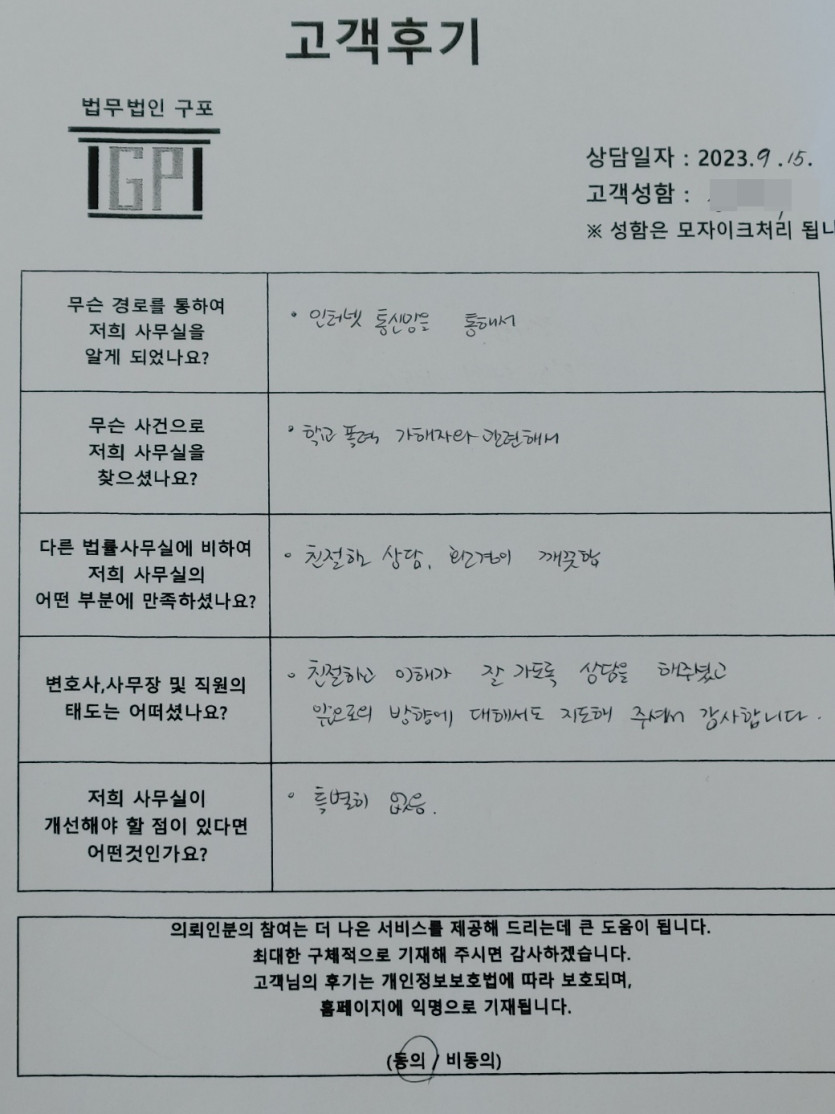 고객후기
법무법인 구포
GP
상담일자 : 2023.9.15.
고객성함 :
※ 성함은 모자이크처리 됩니
무슨 경로를 통하여
저희 사무실을
알게 되었나요?
• 인터넷 통신망을 통해서
무슨 사건으로
저희 사무실을
찾으셨나요?
• 학교폭력 가해자와 관련해서
다른 법률사무실에 비하여
저희 사무실의
어떤 부분에 만족하셨나요?
• 친절한 상담, 환경이 깨끗함
변호사,사무장 및 직원의
태도는 어떠셨나요?
• 친절하고 이해가 잘 가도록 상담을 해주셨고
앞으로의 방향에 대해서도 지도해 주셔서 감사합니다.
저희 사무실이
개선해야 할 점이 있다면
어떤것인가요?
• 특별히 없음.
의뢰인분의 참여는 더 나은 서비스를 제공해 드리는데 큰 도움이 됩니다.
최대한 구체적으로 기재해 주시면 감사하겠습니다.
고객님의 후기는 개인정보보호법에 따라 보호되며,
홈페이지에 익명으로 기재됩니다.
(동의 / 비동의)